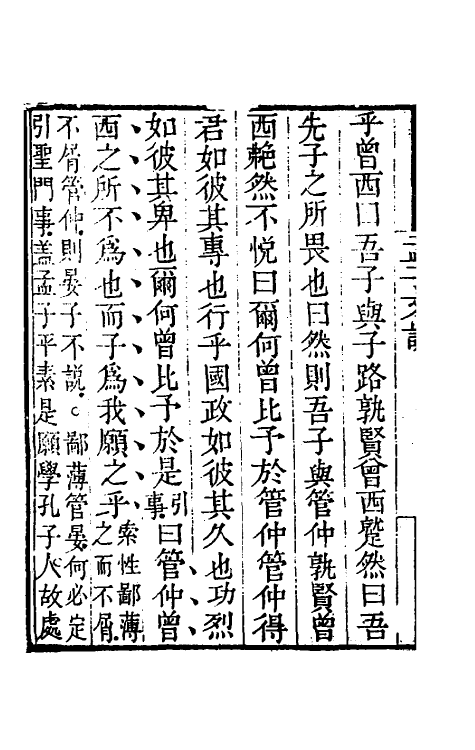 乎曾西曰吾子與子路孰賢曾西蹵然曰吾
先子之所畏也曰然則吾子與管仲孰賢曾
西艴然不悅曰爾何曾比予於管仲管仲得
君如彼其專也行乎國政如彼其久也功烈
如彼其卑也爾何曾比予於是引事曰管仲曾
西之所不爲也而子爲我願之乎索性鄙薄之而不屑
不屑管仲則晏子不說鄙薄管晏何必定
引聖門事蓋孟子平素是願學孔子人故處